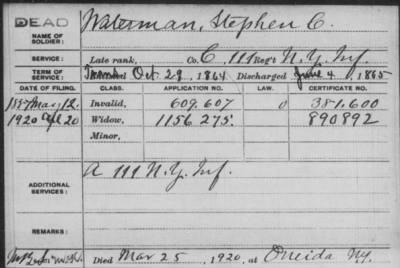 DEAD
NAME OF SOLDIER: Waterman, Stephen C.
SERVICE: Late rank, Co. C, 111 Reg't N.Y. Inf.
TERM OF SERVICE: Oct. 29, 1864 Discharged June 4, 1865
DATE OF FILING. CLASS. APPLICATION NO. LAW. CERTIFICATE NO.
May 12. Invalid, 609.607 0 381.600
1920 Apl 20 Widow, 1156 275. 890892
Minor,
ADDITIONAL SERVICES: A 111 N.Y. Inf.
REMARKS:
Died Mar 25, 1920, at Oneida Ny.